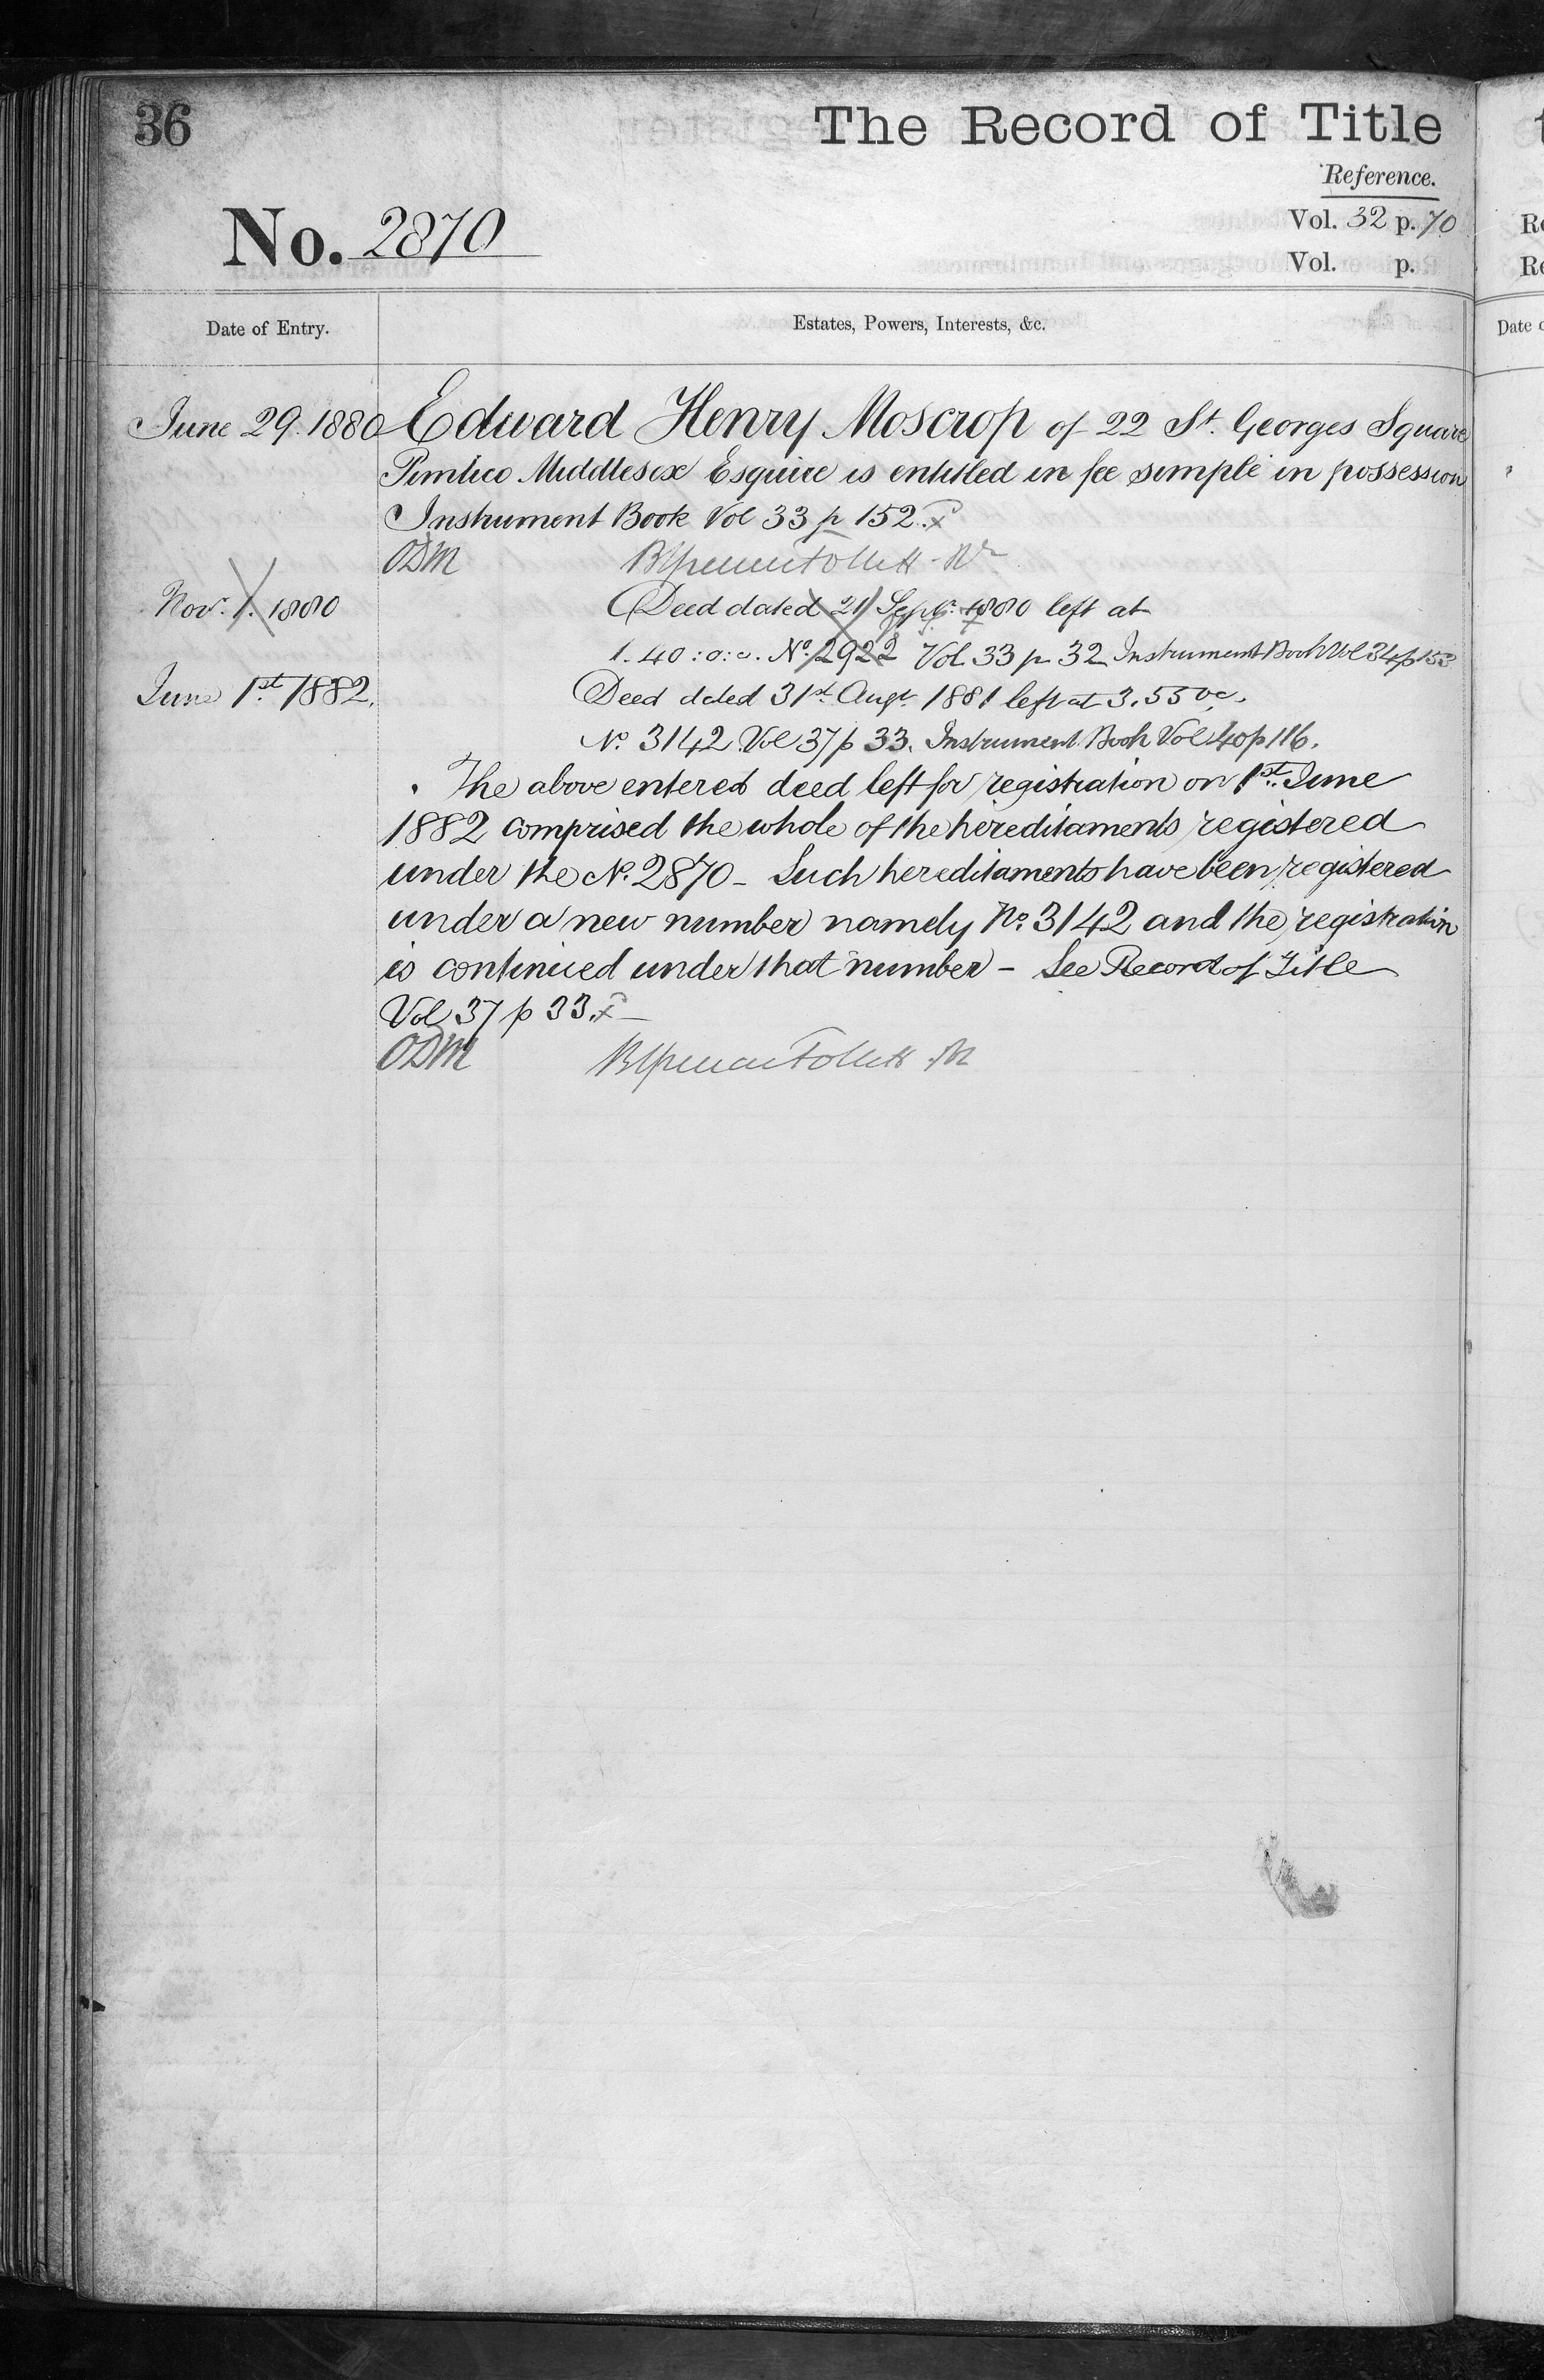 36
The Record of Title
Reference.
No. 2870
Vol. 32 p. 70
Vol. p.
Date of Entry.
Estates, Powers, Interests, &c.
June 29. 1880 Edward Henry Moscrop of 22 St. Georges Square
Pimlico Middlesex Esquire is entitled in fee simple in possession
Instrument Book Vol 33 p 152.
ODM
Novr. 1. 1880 Deed dated 21 Septr. 1880 left at
1.40 : o: c. No. 2922 Vol. 33 p 32 Instrument Book Vol 34 p 153
June 1st. 1882. Deed dated 31st. Augt. 1881 left at 3.55 oc.
No. 3142 Vol 37 p 33. Instrument Book Vol 40 p 116.
The above entered deed left for registration on 1st. June
1882 comprised the whole of the hereditaments registered
under the No. 2870 - Such hereditaments have been registered
under a new number namely No. 3142 and the registration
is continued under that number - See Record of Title
Vol 37 p 33.
ODM
Date